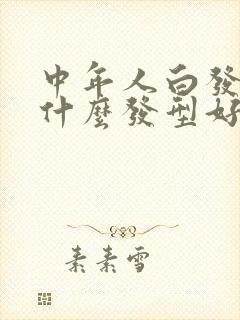 中年人白發
什麼發型好
素素雪